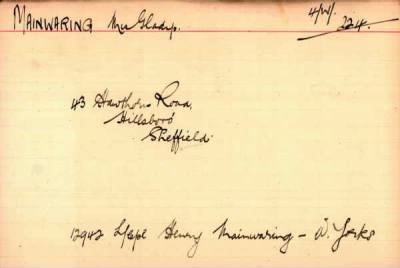 MAINWARING Mrs Gladys. 4/W/ 224.
43 Hawthorn Road,
Hillsboro
Sheffield.
12942 L/Cpl Henry Mainwaring - W. Yorks